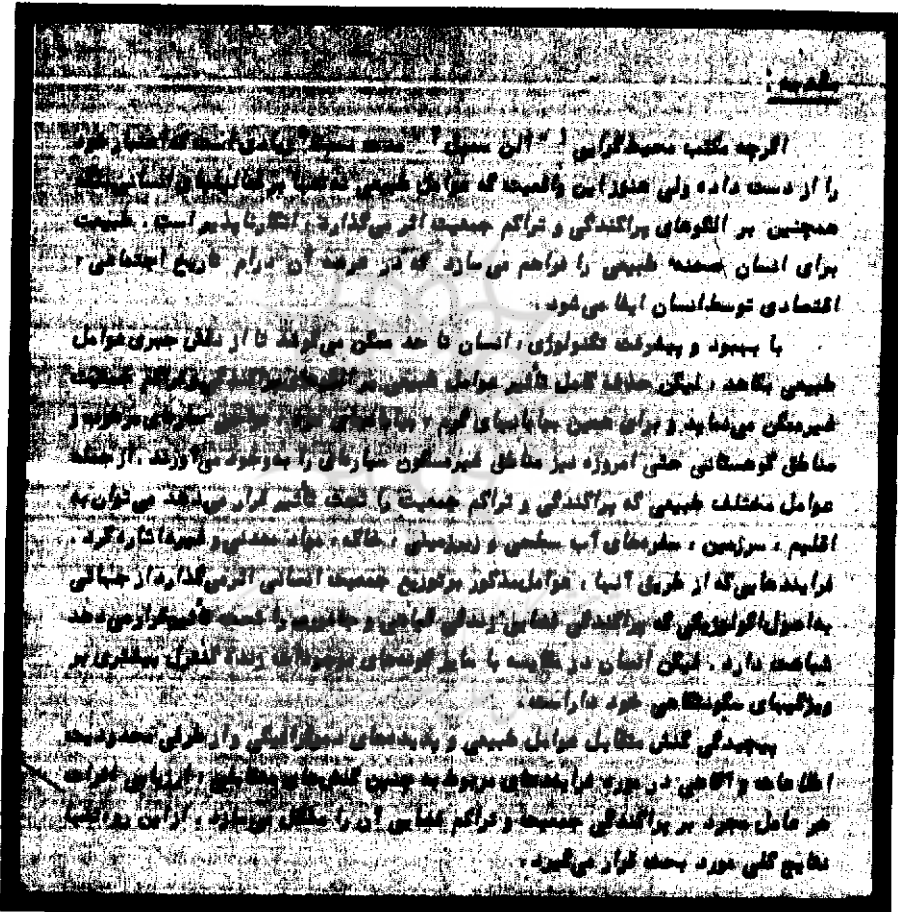 مقدمه :
اگرچه مکتب محیط‌گرایی " الن سمپل " مدت زیادی است که اعتبار خود
را از دست داده ولی هنوز این واقعیت که عوامل طبیعی نه‌تنها بر فعالیتهای انسانی بلکه
همچنین بر الگوهای پراکندگی و تراکم جمعیت اثر می‌گذارد ، انکارناپذیر است . طبیعت
برای انسان صحنه طبیعی را فراهم می‌سازد که در عرصه آن درام تاریخ اجتماعی ،
اقتصادی توسط انسان ایفا می‌شود .
با بهبود و پیشرفت تکنولوژی ، انسان تا حد ممکن می‌کوشد تا از نقش جبری عوامل
طبیعی بکاهد ، لیکن حذف کامل تأثیر عوامل طبیعی بر پراکندگی و تراکم جمعیت
غیرممکن می‌نماید و برای همین بیابانهای گرم ، بیابانهای سرد ، جنگلهای مرطوب و
مناطق کوهستانی حتی امروزه نیز مناطق غیرمسکون سیاره‌ای را بوجود می‌آورند . از جمله
عوامل مختلف طبیعی که پراکندگی و تراکم جمعیت را تحت تأثیر قرار می‌دهد می‌توان به
اقلیم ، سرزمین ، سفره‌های آب سطحی و زیرزمینی ، خاک ، مواد معدنی و غیره اشاره کرد .
فرایندهایی که از طریق آنها ، عوامل مذکور بر توزیع جمعیت انسانی اثر می‌گذارد از جهاتی
به اصول اکولوژیکی که پراکندگی فضایی زندگی گیاهی و جانوری را تحت تأثیر قرار می‌دهد
شباهت دارد . لیکن انسان در مقایسه با سایر گونه‌های موجودات زنده کنترل بیشتری بر
ویژگیهای سکونتگاهی خود دارا است .
پیچیدگی کنش متقابل عوامل طبیعی و پدیده‌های دموگرافیکی و از طرفی محدودیت
اطلاعات و آگاهی در مورد فرآیندهای مربوط به چنین کنش‌های متقابل ، ارزیابی اثرات
هر عامل مجرد بر پراکندگی جمعیت و تراکم فضایی آن را مشکل می‌سازد ، از این رو تنها
نتایج کلی مورد بحث قرار می‌گیرد .